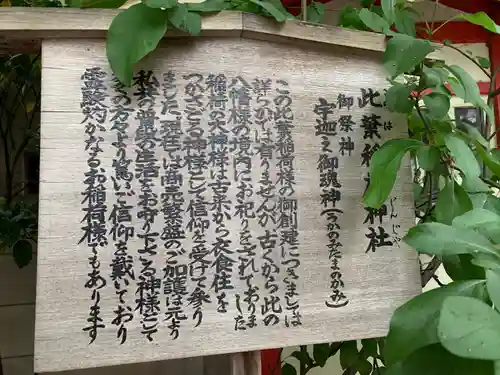 此葉稲荷神社
御祭神
宇迦之御魂神(うかのみたまのかみ)
この此葉稲荷様の御創建につきましては
詳らかでは有りませんが、古くから此の
八幡様の境内にお祀りをされておりました
稲荷の大神様は古来から衣食住を
つかさどる神様として信仰を受けて参り
ました 現在では商元繁盛のご加護は元より
私共の普段の生活をお守り下さる神様として
多くの方々より篤いご信仰を戴いており
霊験灼かなるお稲荷様でもあります